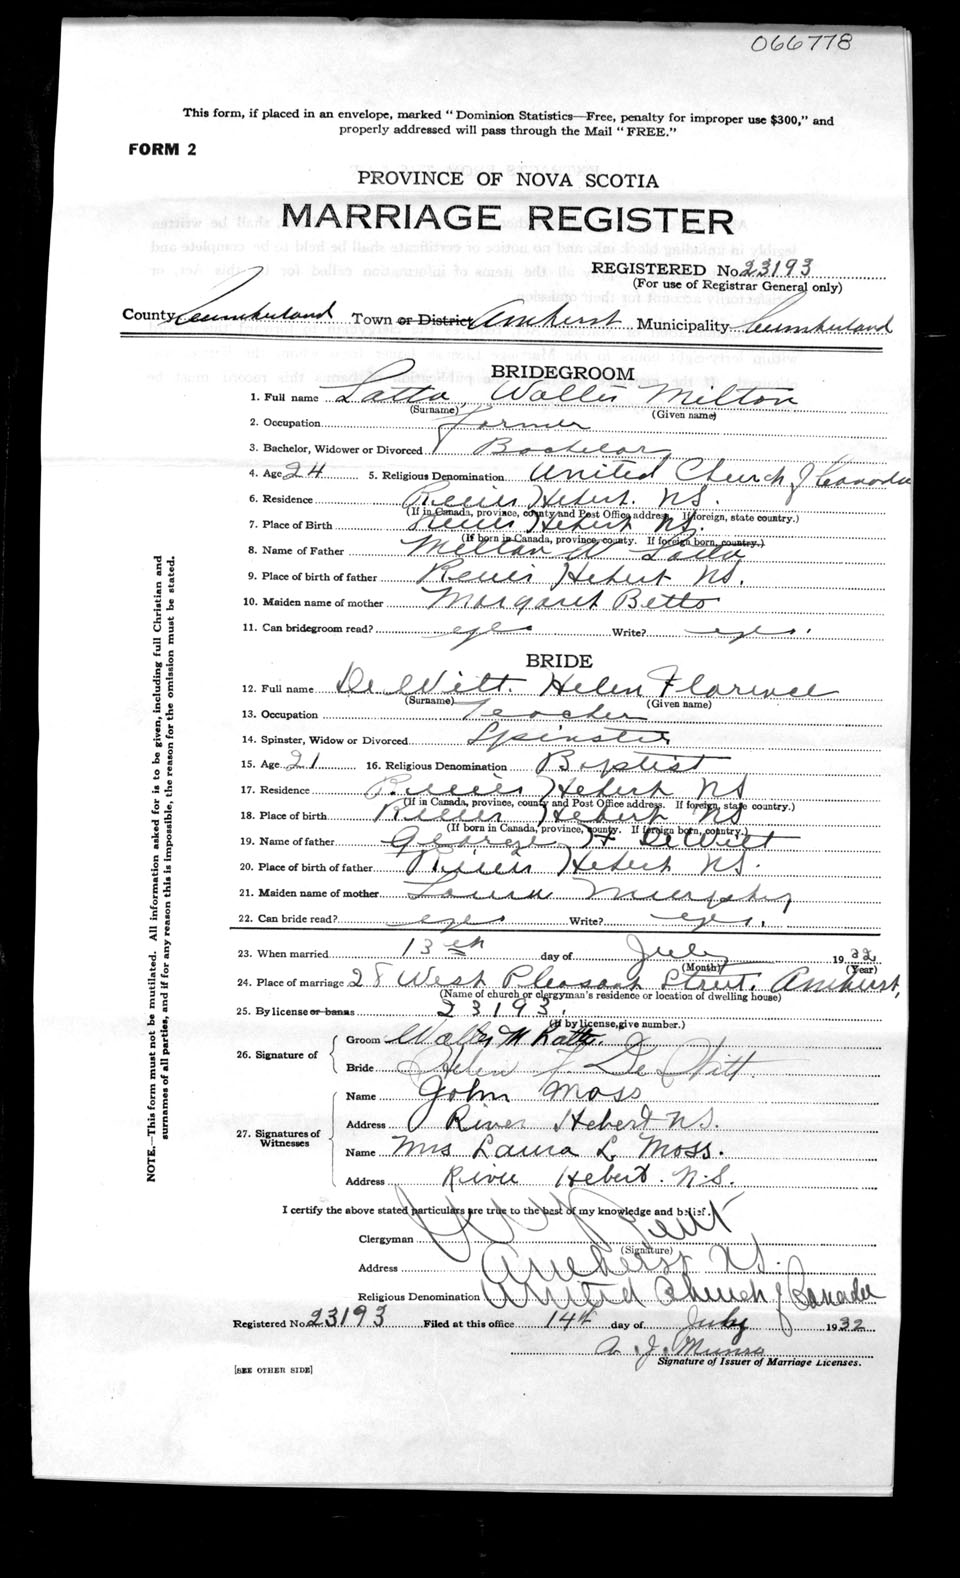 066778
This form, if placed in an envelope, marked "Dominion Statistics—Free, penalty for improper use $300," and
properly addressed will pass through the Mail "FREE."
FORM 2
PROVINCE OF NOVA SCOTIA
MARRIAGE REGISTER
REGISTERED No. 23193
(For use of Registrar General only)
County Cumberland Town or District Amherst Municipality Cumberland
BRIDEGROOM
1. Full name Latta, Walter Milton
(Surname) (Given name)
2. Occupation Farmer
3. Bachelor, Widower or Divorced Bachelor
4. Age 24 5. Religious Denomination United Church of Canada
6. Residence River Hebert. NS.
(If in Canada, province, county and Post Office address. If foreign, state country.)
7. Place of Birth River Hebert NS.
(If born in Canada, province, county. If foreign born, country.)
8. Name of Father Milton W Latta
9. Place of birth of father River Hebert NS.
10. Maiden name of mother Margaret Betts
11. Can bridegroom read? yes Write? yes.
BRIDE
12. Full name De Witt. Helen Florence
(Surname) (Given name)
13. Occupation Teacher
14. Spinster, Widow or Divorced Spinster
15. Age 21 16. Religious Denomination Baptist
17. Residence River Hebert NS
(If in Canada, province, county and Post Office address. If foreign, state country.)
18. Place of birth River Hebert NS
(If born in Canada, province, county. If foreign born, country.)
19. Name of father George H DeWitt
20. Place of birth of father River Hebert NS.
21. Maiden name of mother Laura Murphy
22. Can bride read? yes Write? yes.
23. When married 13th day of July 1932
(Month) (Year)
24. Place of marriage 28 West Pleasant Street. Amherst,
(Name of church or clergyman's residence or location of dwelling house)
25. By license or banns 23193.
(If by license, give number.)
26. Signature of
Groom Walter M Latta.
Bride Helen F. De Witt.
27. Signatures of Witnesses
Name John Moss
Address River Hebert N.S.
Name Mrs Laura L. Moss.
Address River Hebert. N.S.
I certify the above stated particulars are true to the best of my knowledge and belief.
Clergyman
(Signature)
Address Amherst NS.
Religious Denomination United Church of Canada
Registered No. 23193 Filed at this office 14th day of July 1932
A. J. Munro
Signature of Issuer of Marriage Licenses.
[SEE OTHER SIDE]
NOTE.—This form must not be mutilated. All information asked for is to be given, including full Christian and
surnames of all parties, and if for any reason this is impossible, the reason for the omission must be stated.